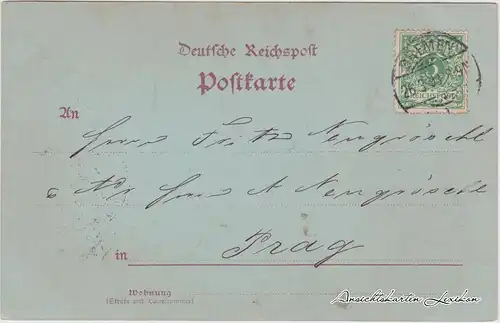 Deutsche Reichspost
Postkarte
BREMEN
An
Herrn Fritz Neugröschl
Herrn A Neugröschl
in Prag
Wohnung
(Straße und Hausnummer)
Ansichtskarten-Lexikon